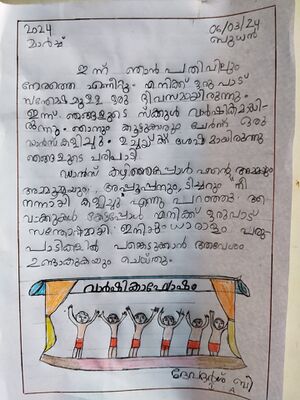 2024
മാർച്ച്
06/03/24
ബുധൻ
ഇന്ന് ഞാൻ പതിവിലും
നേരത്തെ എണീറ്റു. എനിക്ക് ഒരുപാട്
സന്തോഷമുള്ള ഒരു ദിവസമായിരുന്നു.
ഇന്ന് ഞങ്ങളുടെ സ്കൂൾ വാർഷികമായി-
രുന്നു. ഞാനും കൂട്ടുകാരും ചേർന്ന് ഒരു
ഡാൻസ് കളിച്ചു. ഉച്ചയ്ക്ക് ശേഷമായിരുന്നു
ഞങ്ങളുടെ പരിപാടി
ഡാൻസ് കഴിഞ്ഞപ്പോൾ എന്റെ അമ്മയും
അമ്മൂമ്മയും, അപ്പൂപ്പനും, ടീച്ചറും നീ
നന്നായി കളിച്ചു എന്നു പറഞ്ഞു. ആ
വാക്കുകൾ കേട്ടപ്പോൾ എനിക്ക് ഒരുപാട്
സന്തോഷമായി. ഇനിയും ധാരാളം പരി
പാടികളിൽ പങ്കെടുക്കാൻ ആവേശം
ഉണ്ടാകുകയും ചെയ്തു.
വാർഷികാഘോഷം
ബി